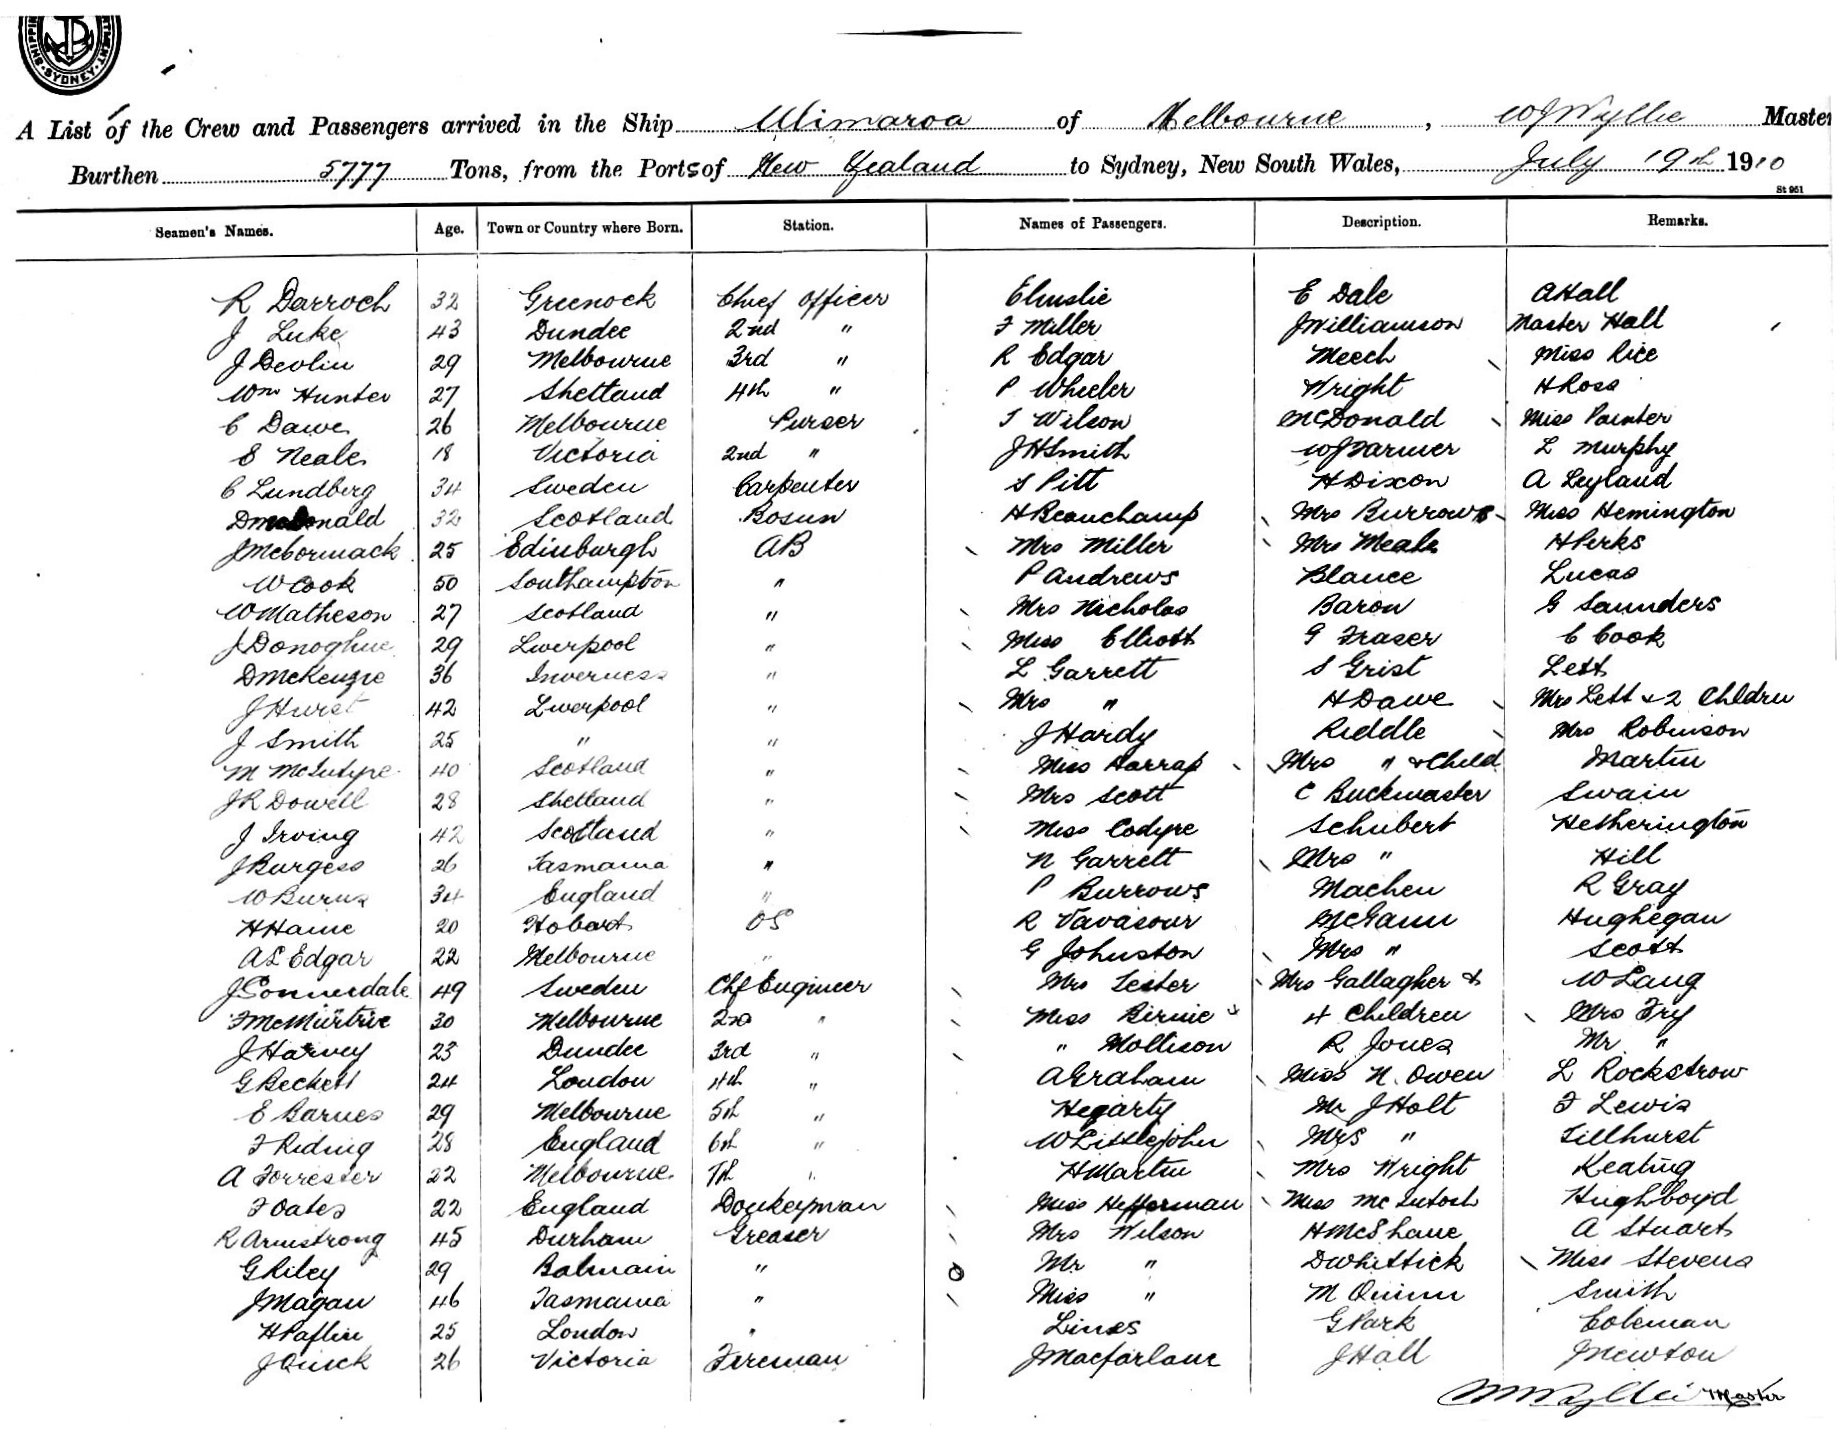 SHIPPIN SYDNEY TMENT
A List of the Crew and Passengers arrived in the Ship Ulimaroa of Melbourne, W J Wyllie Master
Burthen 5777 Tons, from the Ports of New Zealand to Sydney, New South Wales, July 19th 1910
St 951
Seamen's Names. Age. Town or Country where Born. Station. Names of Passengers. Description. Remarks.
R Darroch 32 Greenock Chief Officer Elmslie E Dale A Hall
J Luke 43 Dundee 2nd " F Miller J Williamson Master Hall
J Devlin 29 Melbourne 3rd " R Edgar Meech Miss Rice
Wm Hunter 27 Shetland 4th " P Wheeler Wright H Ross
C Dawe 26 Melbourne Purser T Wilson McDonald Miss Painter
E Neale 18 Victoria 2nd " J H Smith W J Farmer L Murphy
C Lundberg 34 Sweden Carpenter S Pitt H Dixon A Leyland
D McDonald 32 Scotland Bosun H Beauchamp Mrs Burrows Miss Hemington
J McCormack 25 Edinburgh AB Mrs Miller Mrs Meale H Perks
W Cook 50 Southampton " P Andrews Blance Lucas
W Matheson 27 Scotland " Mrs Nicholas Baron G Saunders
J Donoghue 29 Liverpool " Miss Elliott G Fraser C Cook
D McKenzie 36 Inverness " L Garrett S Grist Lett
J Hurst 42 Liverpool " Mrs " H Dawe Mrs Lett & 2 Children
J Smith 25 " " J Hardy Riddle Mrs Robinson
M McIntyre 40 Scotland " Miss Harrap Mrs " & Child Martin
J R Dowell 28 Shetland " Mrs Scott C Buckmaster Swain
J Irving 42 Scotland " Miss Codyre Schubert Hetherington
J Burgess 26 Tasmania " N Garrett Mrs " Hill
W Burns 34 England " P Burrows Machen R Gray
H Haine 20 Hobart OS R Vavasour McGann Hughegan
A L Edgar 22 Melbourne " G Johnston Mrs " Scott
J Sonnerdale 49 Sweden Chf Engineer Mrs Lester Mrs Gallagher & W Lang
F McMurtrie 30 Melbourne 2nd " Miss Birnie & 4 Children Mrs Fry
J Harvey 23 Dundee 3rd " " Mollison R Jones Mr "
G Beckett 24 London 4th " A Graham Miss N. Owen L Rockstrow
E Barnes 29 Melbourne 5th " Hegarty Mr J Holt F Lewis
F Riding 28 England 6th " W Littlejohn Mrs " Tillhurst
A Forrester 22 Melbourne 7th " H Martin Mrs Wright Keating
F Oates 22 England Donkeyman Miss Hefferman Miss McIntosh Hugh Boyd
R Armstrong 45 Durham Greaser Mrs Wilson H McShane A Stuart
G Riley 29 Balmain " Mr " D Whittick Miss Stevens
J Magan 46 Tasmania " Miss " M Quinn Smith
H Paflin 25 London " Lines G Park Coleman
J Quick 26 Victoria Fireman J Macfarlane J Hall J Newton
W J Wyllie Master